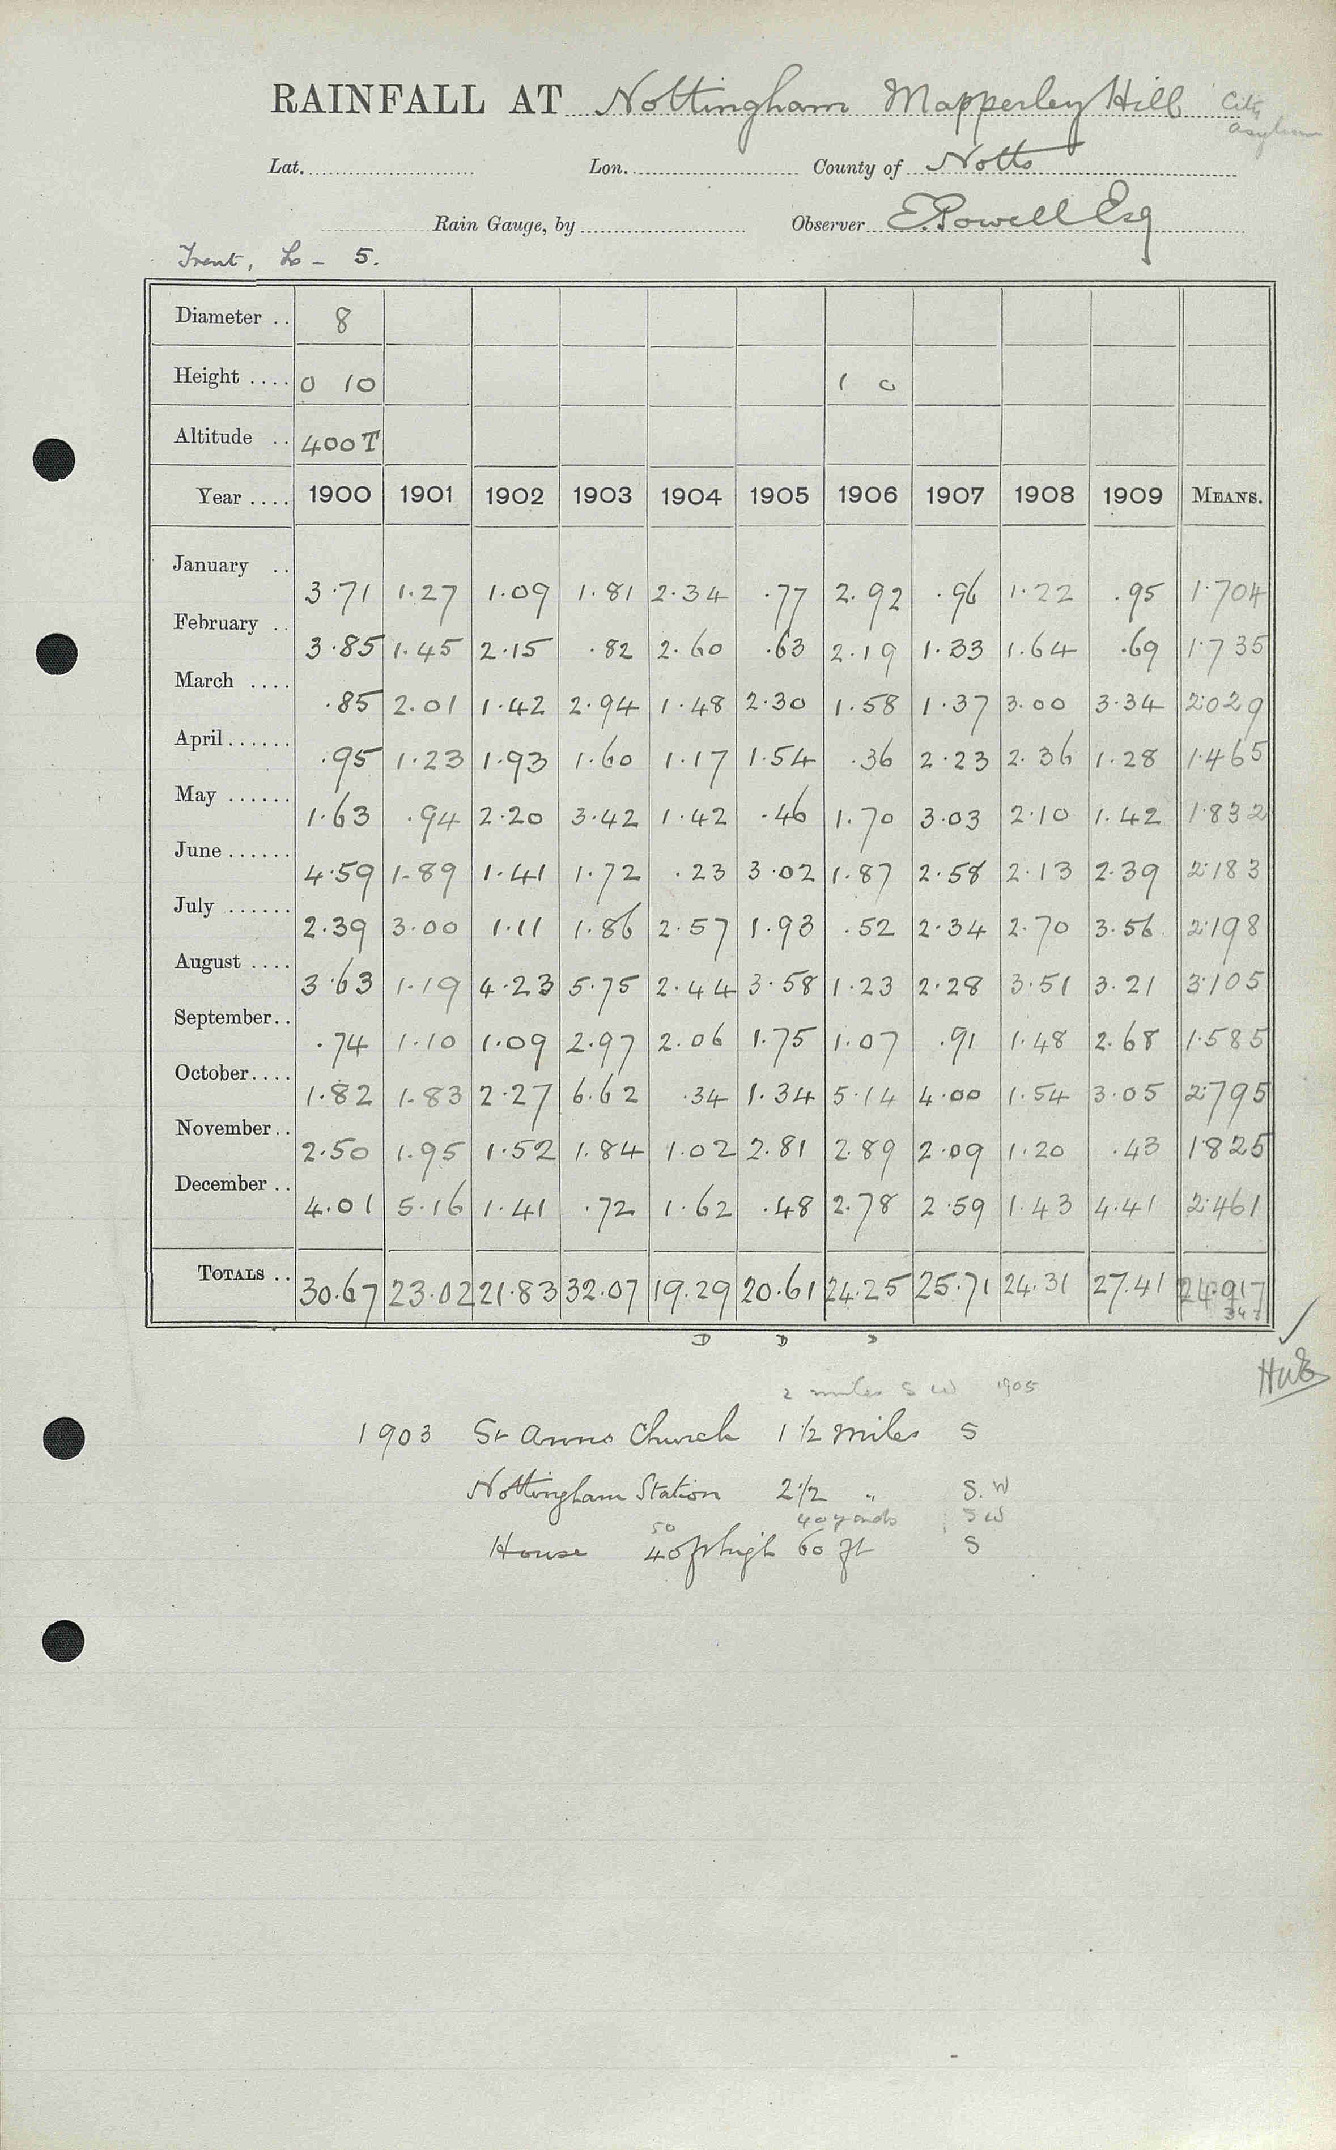 RAINFALL AT Nottingham Mapperley Hill City Asylum
Lat. Lon. County of Notts
Rain Gauge, by Observer E. Powell Esq
Trent, Lo - 5.
Diameter .. 8
Height .... 0 10 1 0
Altitude .. 400 T
Year .... 1900 1901 1902 1903 1904 1905 1906 1907 1908 1909 MEANS.
January .. 3.71 1.27 1.09 1.81 2.34 .77 2.92 .96 1.22 .95 1.704
February .. 3.85 1.45 2.15 .82 2.60 .63 2.19 1.33 1.64 .69 1.735
March .... .85 2.01 1.42 2.94 1.48 2.30 1.58 1.37 3.00 3.34 2.029
April...... .95 1.23 1.93 1.60 1.17 1.54 .36 2.23 2.36 1.28 1.465
May ...... 1.63 .94 2.20 3.42 1.42 .46 1.70 3.03 2.10 1.42 1.832
June...... 4.59 1.89 1.41 1.72 .23 3.02 1.87 2.58 2.13 2.39 2.183
July ...... 2.39 3.00 1.11 1.86 2.57 1.93 .52 2.34 2.70 3.56 2.198
August .... 3.63 1.19 4.23 5.75 2.44 3.58 1.23 2.28 3.51 3.21 3.105
September.. .74 1.10 1.09 2.97 2.06 1.75 1.07 .91 1.48 2.68 1.585
October.... 1.82 1.83 2.27 6.62 .34 1.34 5.14 4.00 1.54 3.05 2.795
November.. 2.50 1.95 1.52 1.84 1.02 2.81 2.89 2.09 1.20 .43 1.825
December .. 4.01 5.16 1.41 .72 1.62 .48 2.78 2.59 1.43 4.41 2.461
TOTALS .. 30.67 23.02 21.83 32.07 19.29 20.61 24.25 25.71 24.31 27.41 24.917
D D D
2 miles S W 1905
1903 St Anns Church 1 1/2 miles S
Nottingham Station 2 1/2 " S. W
50 40 yards S W
House 40 ft high 60 ft S